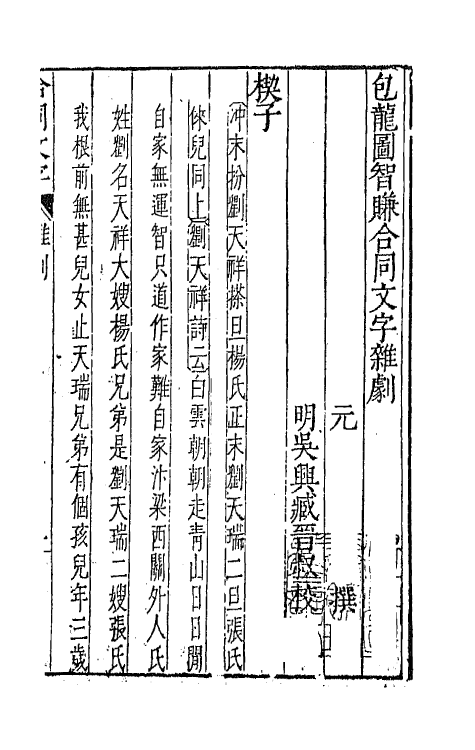 包龍圖智賺合同文字雜劇
元　撰
明吳興臧晉叔校
楔子
冲末扮劉天祥搽旦楊氏正末劉天瑞二旦張氏
俫兒同上劉天祥詩云白雲朝朝走青山日日閒
自家無運智只道作家難自家汴梁西關外人氏
姓劉名天祥大嫂楊氏兄弟是劉天瑞二嫂張氏
我根前無甚兒女止天瑞兄弟有個孩兒年三歲
合同文字　雜劇